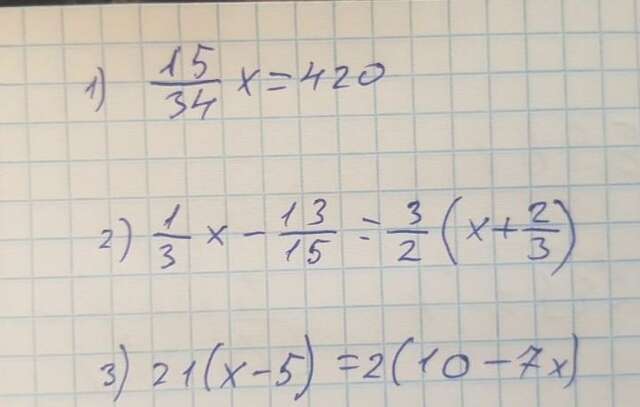 1) 15/34 x = 420
2) 1/3 x - 13/15 = 3/2 (x + 2/3)
3) 21(x-5) = 2(10-7x)